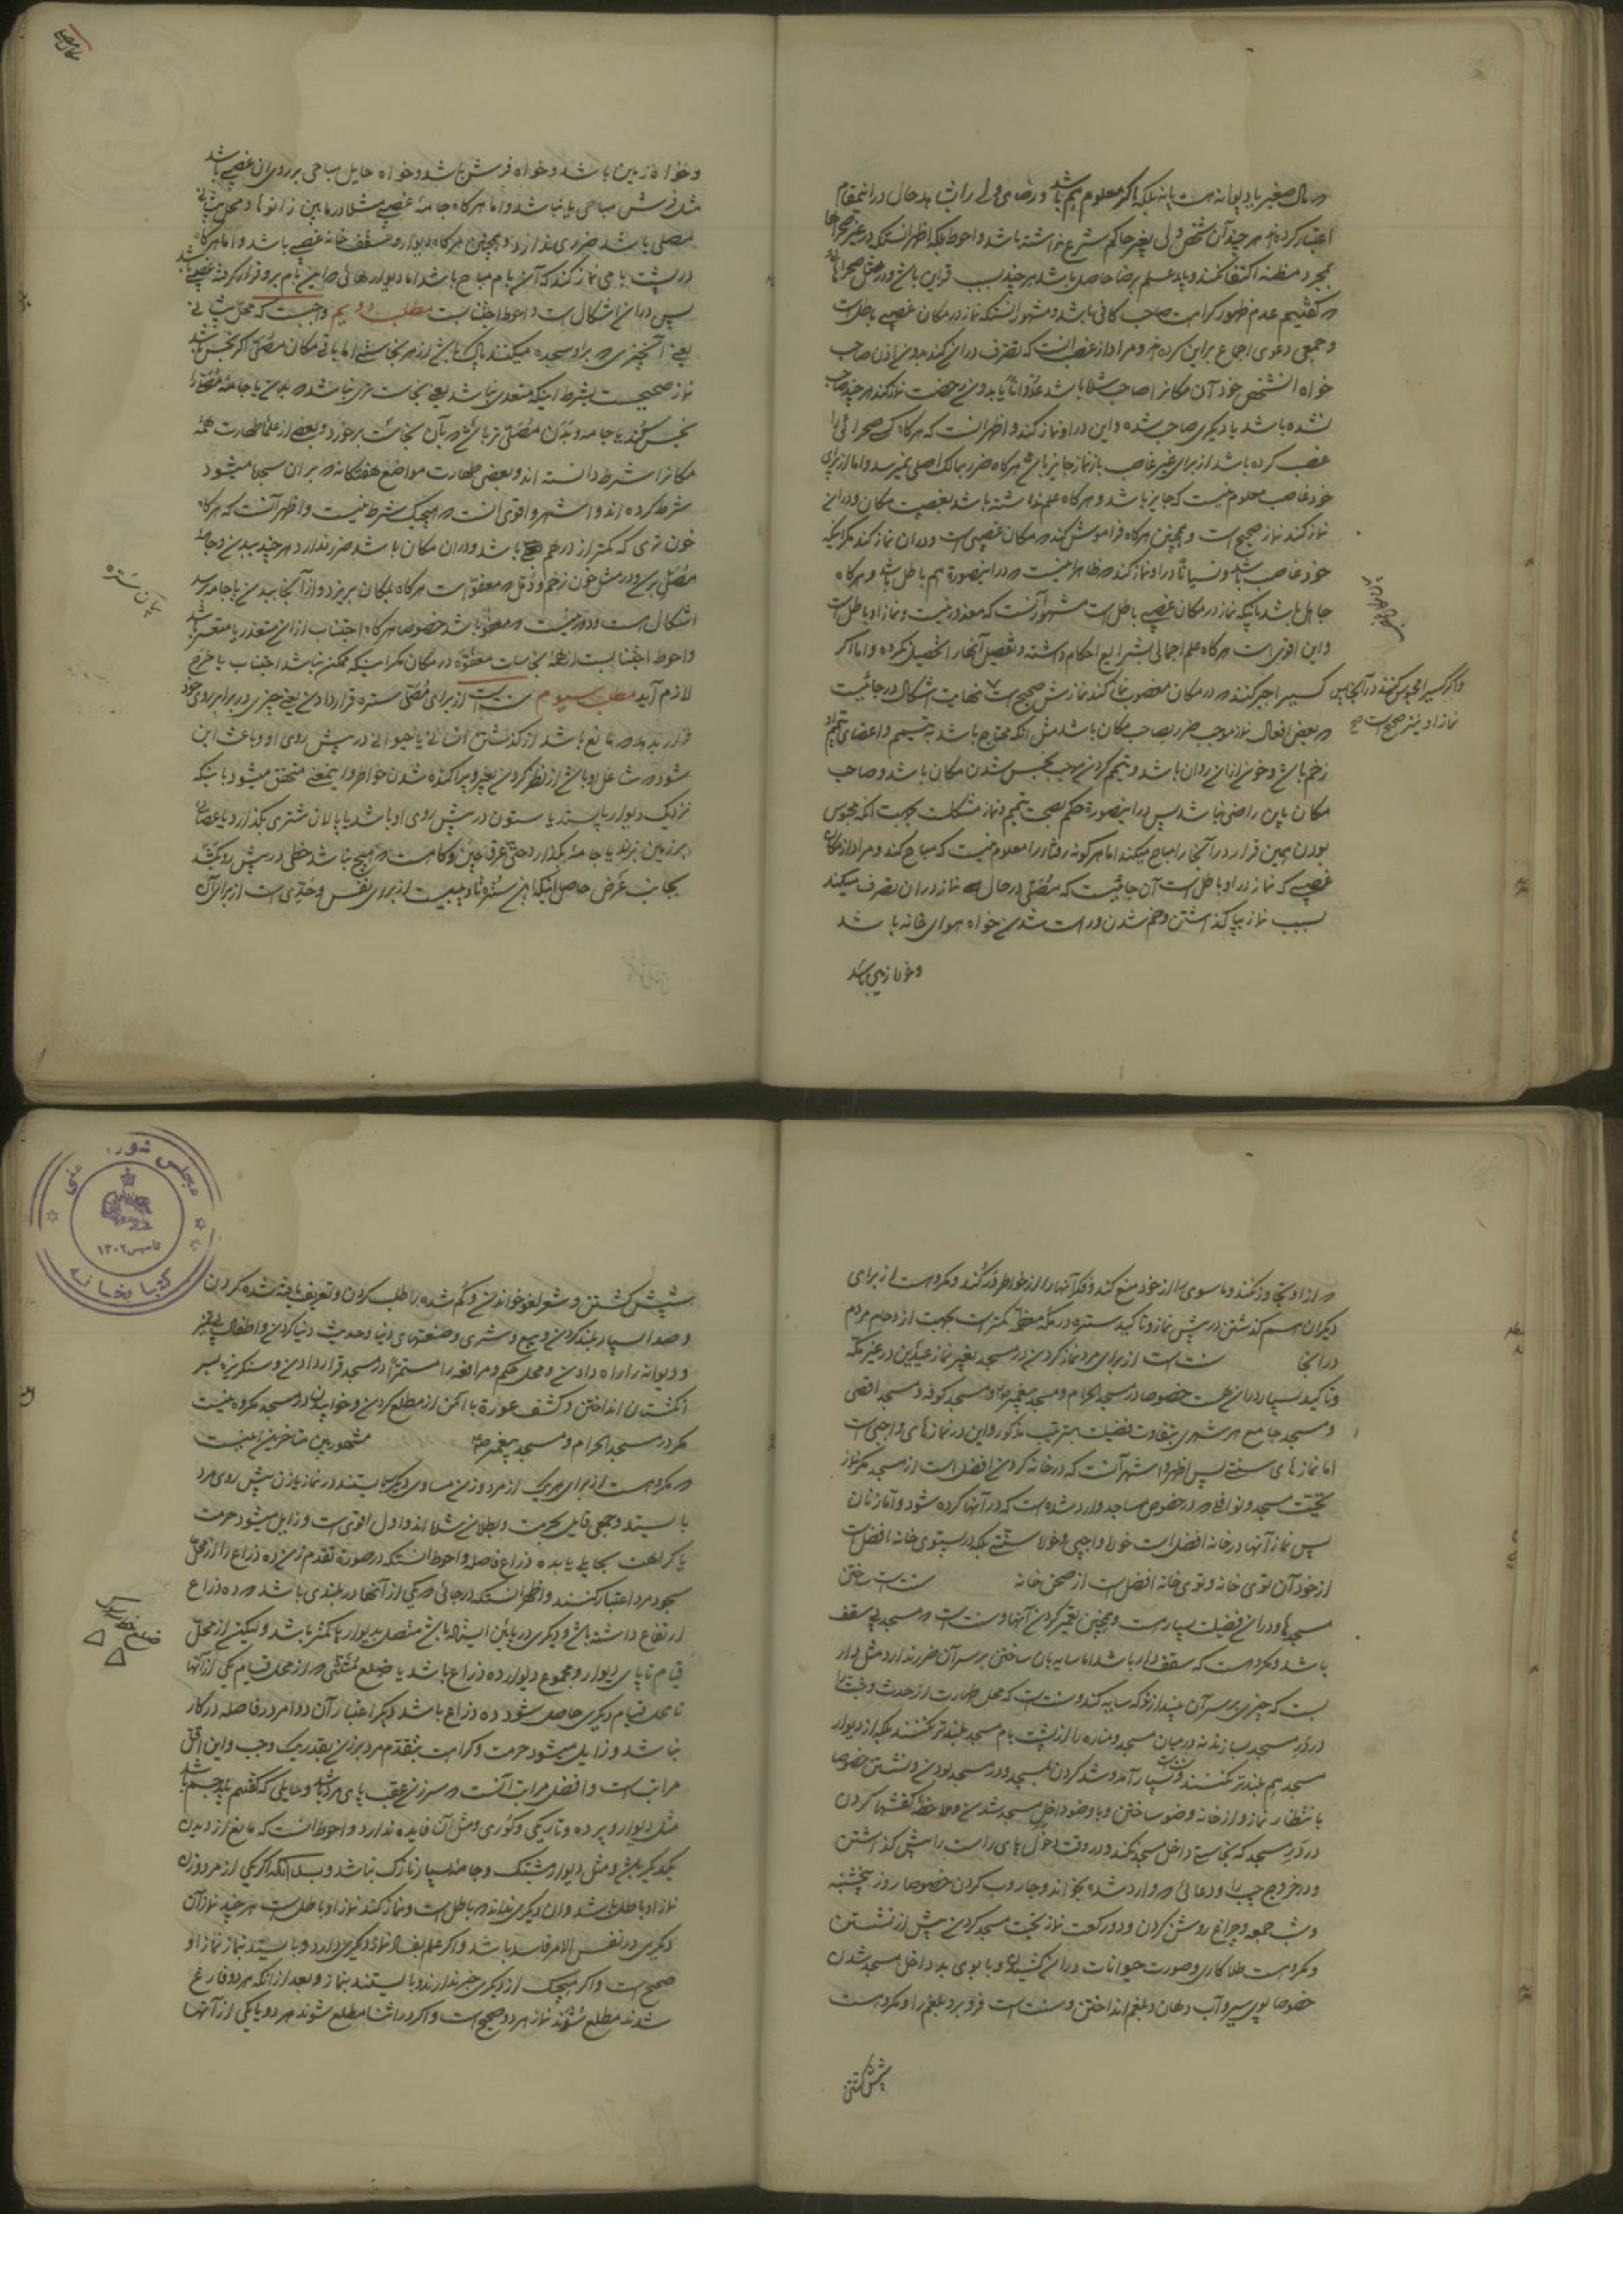 که مال صغیر یا دیوانه است یا نه بلکه اگر معلوم هم باشد و رضای ولی را در این مقام
اعتبار کرده‌اند هر چند آن شخص ولی بغیر حاکم شرع نداشته باشد و احوط بلکه اظهر آنستکه در غیر صحراها
بمجرد مظنه اکتفا نکنند و باید علم برضا حاصل باشد هر چند بسبب قراین باشد و در مثل صحراها
که گفتیم عدم ظهور کراهت صاحب کافی باشد و مشهور آنستکه نماز در مکان غصبی باطل است
و جمعی دعوی اجماع بر این کرده‌اند و مراد از غصب آنست که تصرف در آن کند بدون اذن صاحب
خواه آنشخص خود آن مکانرا صاحب شده باشد عدوانا یا بدون رخصت نماز کند هر چند صاحب
نشده باشد یا دیگری صاحب شده و این در او نماز کند و اظهر آنست که هرگاه کسی صحرائی را
غصب کرده باشد از برای غیر غاصب باز نماز جایز باشد هرگاه ضرر بمالک اصلی نمیرسد و اما از برای
خود غاصب معلوم نیست که جایز باشد و هرگاه علم نداشته باشد بغصبیت مکان و در آن
نماز کند نماز صحیح است و همچنین هرگاه فراموش کند که مکان غصبی است و در آن نماز کند مگر اینکه
خود غاصب باشد و نسیانا در او نماز کند که ظاهر اینست که در اینصورة هم باطل باشد و هرگاه
جاهل باشد باینکه نماز در مکان غصبی باطل است مشهور آنست که معذور نیست و نماز او باطل است
و این اقوی است هرگاه علم اجمالی بشرایع احکام داشته و تفصیل آنها را تحصیل نکرده و اما اگر
کسیرا جبر کنند که در مکان مغصوب نماز کند نمازش صحیح است نهایت اشکال در جائیست
و اگر کسیرا محبوس کنند در آنجا پس
نماز او نیز صحیح است صح
که بعض افعال نماز موجب ضرر بصاحب مکان باشد مثل آنکه محتاج باشد به تیمم و اعضای تیمم او
زخم باشد و خون از آن روان باشد و تیمم کردن موجب نجس شدن مکان باشد و صاحب
مکان باین راضی نباشد پس در اینصورة حکم بصحت تیمم و نماز مشکلست بجهت آنکه محبوس
بودن بهمین قرار در آنجا را مباح میکند اما هر گونه رفتار را معلوم نیست که مباح کند و مراد از مکان
غصبی که نماز در او باطل است آن جائیست که مصلی در حال نماز در آن تصرف میکند
بسبب نماز بپا گذاشتن و خم شدن و راست شدن خواه هوای خانه باشد
و خواه زمین باشد
مکان مصلی
و خواه زمین باشد و خواه فرش باشد و خواه حایل مباحی بر روی آن غصبی باشد
مثل فرش مباحی یا نباشد و اما هرگاه جامهٔ غصبی مثلا در مابین زانوها و محل پیشانی
مصلی باشد ضرری ندارد و همچنین هرگاه دیوار و سقف خانه غصبی باشد و اما هرگاه
در پشت بامی نماز کند که آن بام مباح باشد اما دیوارهائی که این بام بر او قرار گرفته غصبی باشد
پس در آن اشکال است و احوط اجتنابست مطلب دویم واجبست که محل پیشانی
یعنی آنچیزی که بر او سجده میکند پاک باشد از هر نجاستی اما باقی مکان مصلی اگر نجس باشد
نماز صحیحست بشرط اینکه متعدی نباشد یعنی نجاست تری نباشد که بدن یا جامهٔ مصلی را
نجس کند یا جامه و بدن مصلی تر باشد که بآن نجاست برخورد و بعضی از علما طهارت همهٔ
مکانرا شرط دانسته‌اند و بعضی طهارت مواضع هفتگانه که بر آن سجده میشود
شرط کرده‌اند و اشهر و اقوی آنست که هیچیک شرط نیست و اظهر آنست که هرگاه
خون تری که کمتر از درهم باشد و در آن مکان باشد ضرر ندارد هر چند ببدن و جامهٔ
مصلی برسد و در مثل خون زخم و دمل که معفو است هرگاه بمکان بریزد و از آنجا ببدن یا جامه برسد
بیان ستره
اشکال است و دور نیست که معفو باشد خصوصا هرگاه اجتناب از آن متعذر یا متعسر باشد
و احوط اجتنابست از همهٔ نجاسات معفوه در مکان مگر اینکه ممکن نباشد اجتناب یا حرج
لازم آید مطلب سیوم سنت است از برای مصلی ستره قرار دادن یعنی چیزی در برابر روی خود
قرار بدهد که مانع باشد از گذشتن انسانی یا حیوانی در پیش روی او و باعث این
شود که شاغل او باشد از نظر کردن بغیر و پراکنده شدن خواطر و اینمعنی متحقق میشود باینکه
نزدیک دیوار بایستد یا ستون در پیش روی او باشد یا پالان شتری بگذارد یا عصائی
بر زمین بزند یا جامهٔ بگذارد حتی عرق چین و کلاه است که هیچ نباشد خطی در پیش رو بکشد
بجانب عرض حاصل اینکه این ستره تادیبیست از برای نفس و حدی است از برای آن
که از او تجاوز نکند و ما سوی الله از خود منع کند و فکر آنها را از خواطر در کند و مکروهست از برای
دیگران هم گذشتن در پیش نماز و تاکید ستره در مکه معظمه کمتر است بجهت ازدحام مردم
در آنجا سنت است از برای مرد نماز کردن در مسجد بغیر نماز عیدین در غیر مکه
و تاکید بسیار در آن هست خصوصا در مسجد الحرام و مسجد پیغمبر ص و مسجد کوفه و مسجد اقصی
و مسجد جامع هر شهری بتفاوت فضیلت بترتیب مذکور و این در نمازهای واجبی است
اما نمازهای سنتی پس اظهر و اشهر آنست که در خانه کردن افضل است از مسجد مگر نماز
تحیت مسجد و نوافلی که در خصوص مساجد وارد شده است که در آنها کرده شود و اما زنان
پس نماز آنها در خانه افضل است خواه واجبی و خواه سنتی بلکه در پستوی خانه افضلست
از خود آن توی خانه و توی خانه افضل است از صحن خانه سنت است ساختن
مسجدها و در آن فضیلت بسیار است و همچنین تعمیر کردن آنها و سنت است که مسجد بی سقف
باشد و مکروهست که سقف دار باشد اما سایه بان ساختن بر سر آن ضرر ندارد مثل دار
بست که چیزی بر سر آن بیندازند که سایه کند و سنت است که محل طهارت از حدث و خبث را
در در مسجد بسازند نه در میان مسجد و مناره را از پشت بام مسجد بلندتر نکنند بلکه از دیوار
مسجد هم بلندتر نکنند و سنت است بسیار آمد و شد کردن بمسجد و در مسجد بودن و نشستن خصوصا
بانتظار نماز و از خانه وضو ساختن و با وضو داخل مسجد شدن و ملاحظهٔ کفشها کردن
در در مسجد که نجاستی داخل مسجد نکند و در وقت دخول پای راست را پیش گذاشتن
و در خروج چپ را و دعائی که وارد شده بخواند و جاروب کردن خصوصا روز پنجشنبه
و شب جمعه و چراغ روشن کردن و دو رکعت نماز تحیت مسجد کردن پیش از نشستن
و مکروهست طلا کاری و صورت حیوانات در آن کشیدن و با بوی بد داخل مسجد شدن
خصوصا بوی سیر و آب دهان و بلغم انداختن و سنت است فرو برد بلغم را و مکروهست
شپش کشتن
مجلس شورای ملی
تاسیس ۱۳۰۲
کتابخانه
شپش کشتن و شعر لغو خواندن و گم شده را طلب کردن و تعریف یافته شده کردن
و صدا بسیار بلند کردن و بیع و شری و صنعتهای دنیا و حدیث دنیا کردن و اطفال بی تمیز
و دیوانه را راه دادن و محل حکم و مرافعه را مستمرا در مسجد قرار دادن و سنگریزه بسر
انگشتان انداختن و کشف عورة با ایمن از مطلع کردن و خوابیدن در مسجد مکروه نیست
مگر در مسجد الحرام و مسجد پیغمبر ص مشهور بین متاخرین اینست
که مکروهست از برای هر یک از مرد و زن مساوی دیگری بایستند در نماز یا زن پیش روی مرد
بایستد و جمعی قایل بحرمت و بطلان شده‌اند و اول اقوی است و زایل میشود حرمت
یا کراهت بحایلی یا بده ذراع فاصله و احوط آنستکه در صورة تقدم زن ده ذراع را از محل
سجود مرد اعتبار کنند و اظهر آنستکه در جائی که یکی از آنها در بلندی باشد که ده ذراع
ارتفاع داشته باشد و دیگری در پائین ایستاده باشد متصل بدیوار یا کمتر باشد و لیکن از محل
قیام تا پای دیوار و مجموع دیوار ده ذراع باشد یا ضلع مثلثی که از محل قیام یکی از آنها
تا محل قیام دیگری حاصل شود ده ذراع باشد دیگر اعتبار آن دو امر در فاصله در کار
نباشد و زایل میشود حرمت و کراهت بتقدم مرد بر زن بقدر یک وجب و این اقل
مراتب است و افضل مراتب آنست که سر زن عقب پای مرد باشد و حایلی که گفتیم باید جسم باشد
مثل دیوار و پرده و تاریکی و کوری و مثل آن فایده ندارد و احوط آنست که مانع از دیدن
یکدیگر باشد و مثل دیوار مشبک و جامهٔ بسیار نازک نباشد و بدانکه اگر یکی از مرد و زن
نماز او باطل باشد و آن دیگری نداند که باطل است و نماز کند نماز او باطل است هر چند نماز آن
دیگری در نفس الامر فاسد باشد و اگر علم بفساد نماز دیگری دارد و بایستد بنماز نماز او
صحیح است و اگر هیچیک از دیگری خبر ندارند و بایستند بنماز و بعد از آنکه هر دو فارغ
شدند مطلع شوند نماز هر دو صحیح است و اگر در اثنا مطلع شوند هر دو یا یکی از آنها